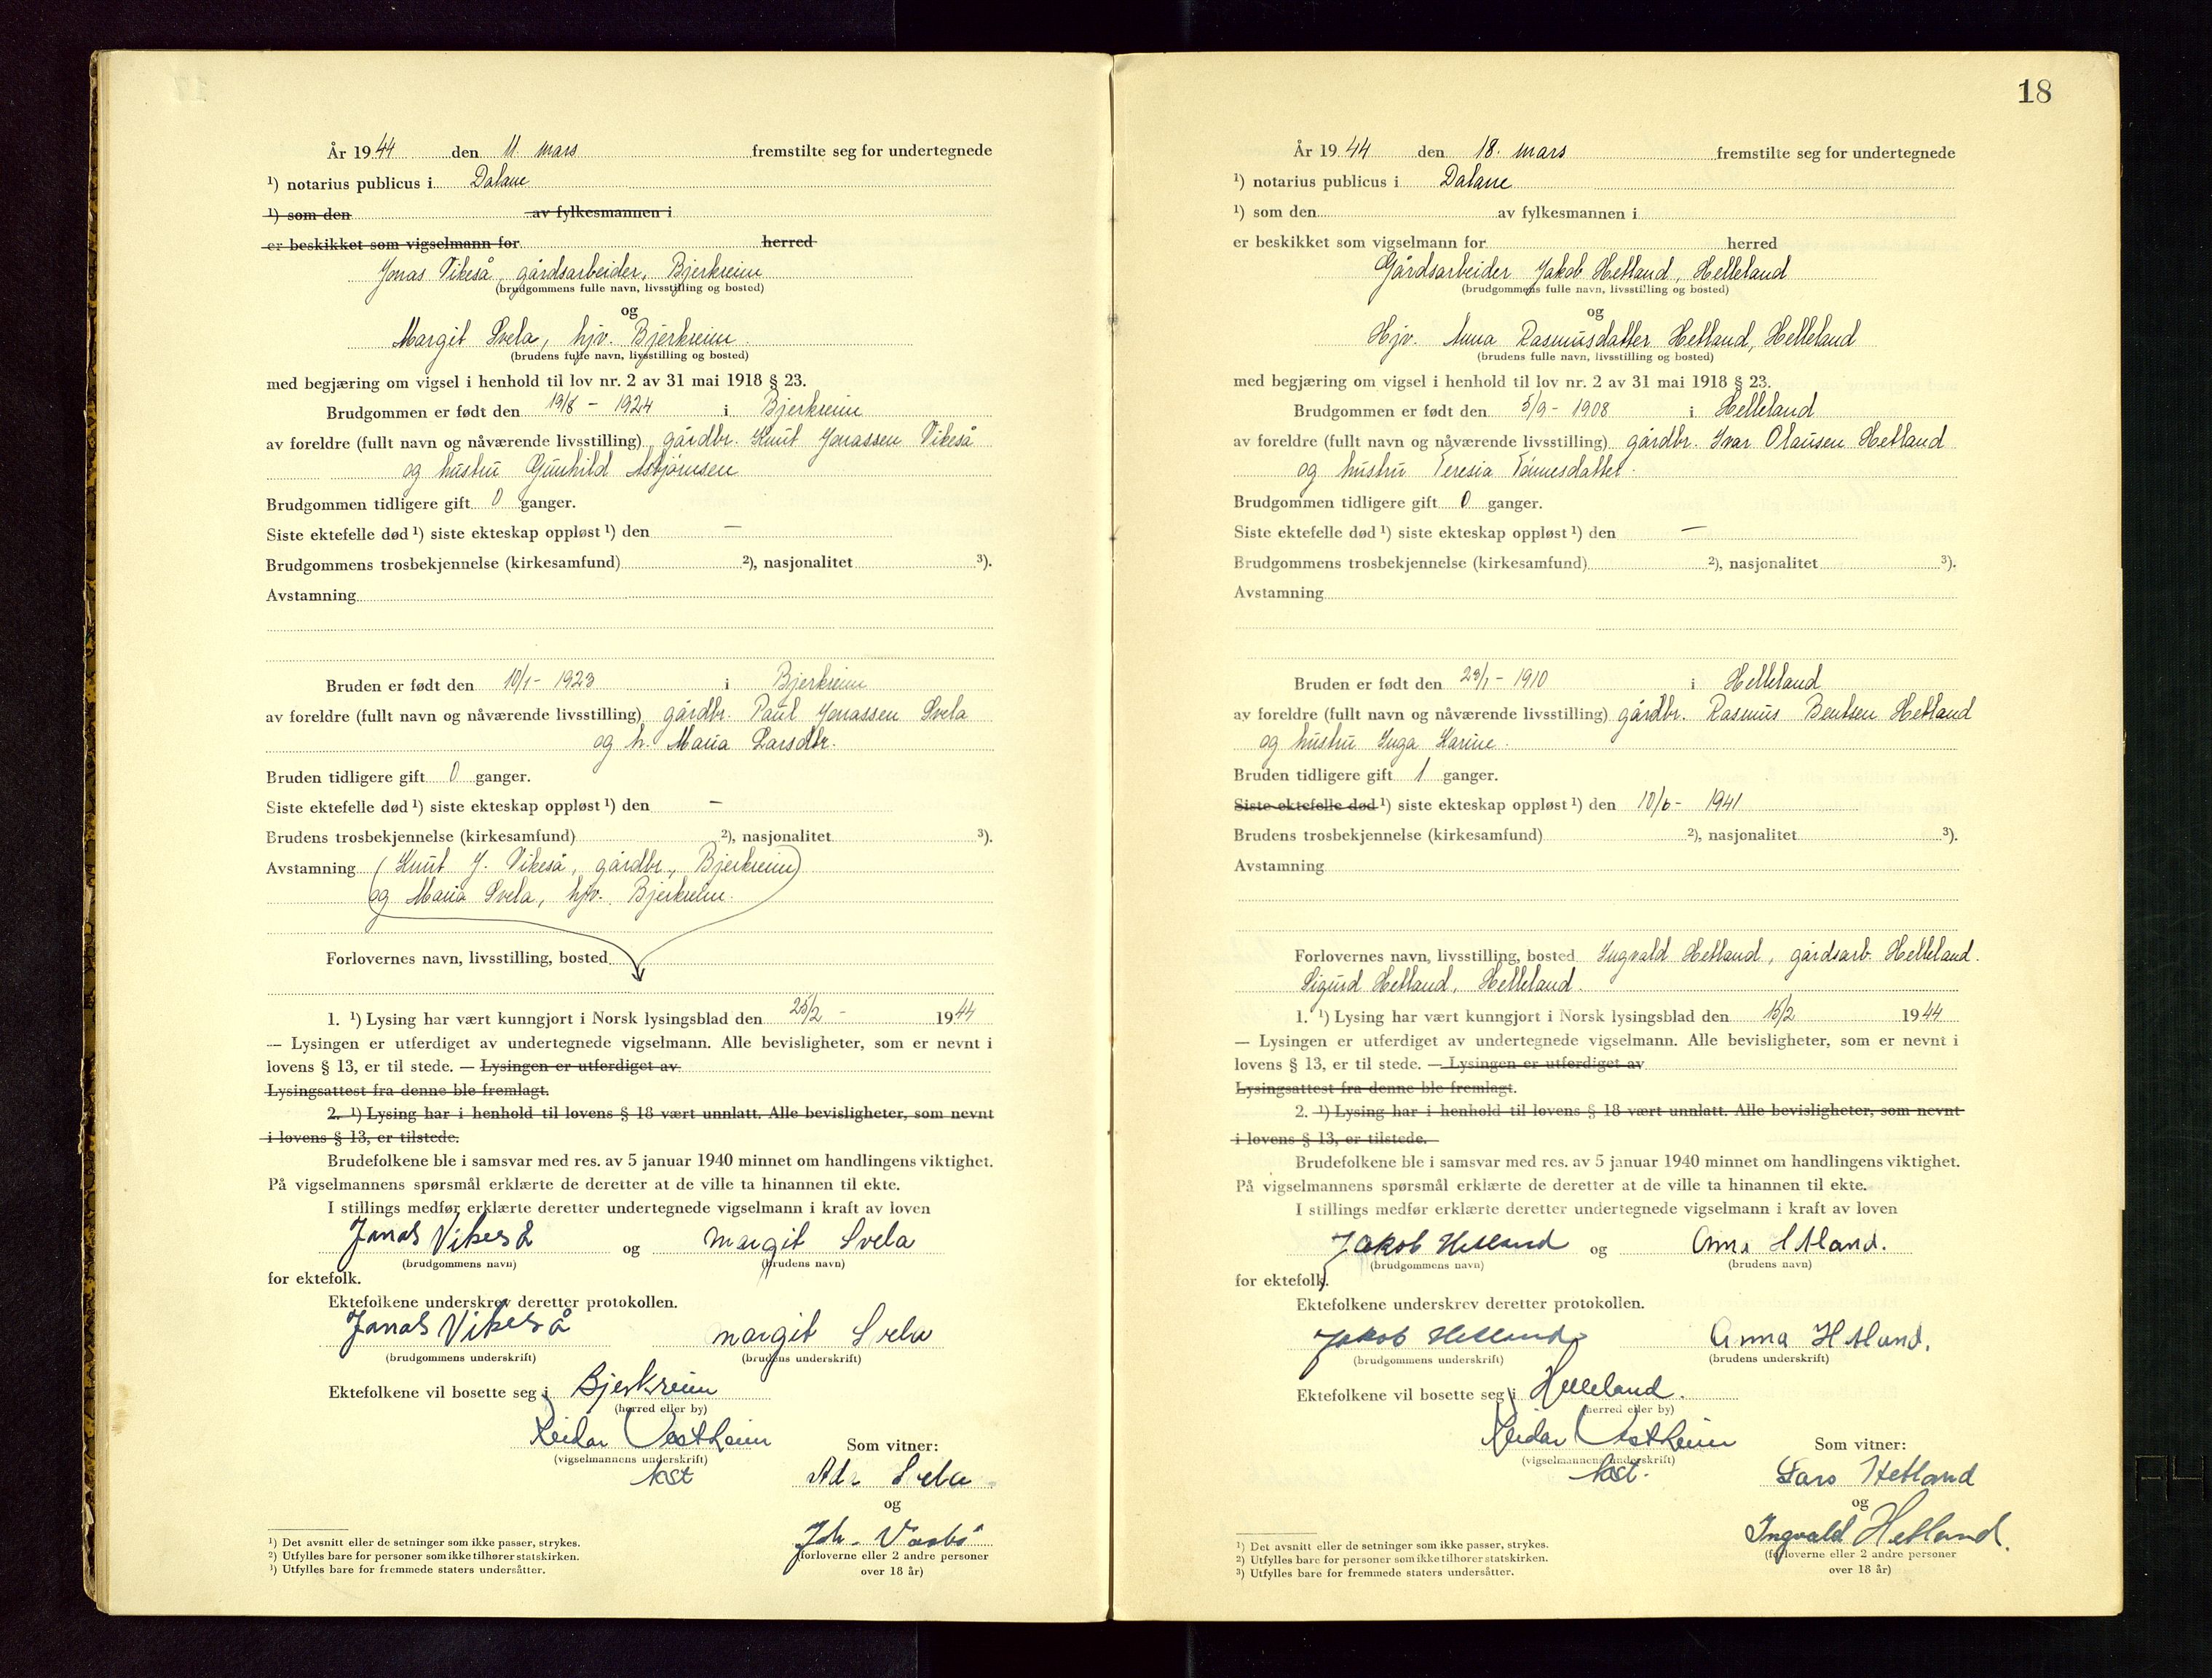 År 1944 den 11 mars fremstilte seg for undertegnede
¹) notarius publicus i Dalane
¹) som den av fylkesmannen i
er beskikket som vigselmann for herred
Jonas Vikeså, gårdsarbeider, Bjerkreim
(brudgommens fulle navn, livsstilling og bosted)
og
Margit Svela, hjv. Bjerkreim
(brudens fulle navn, livsstilling og bosted)
med begjæring om vigsel i henhold til lov nr. 2 av 31 mai 1918 § 23.
Brudgommen er født den 19/8 - 1924 i Bjerkreim
av foreldre (fullt navn og nåværende livsstilling) gårdbr. Knut Jonassen Vikeså
og hustru Gunhild Asbjørnsen
Brudgommen tidligere gift 0 ganger.
Siste ektefelle død ¹) siste ekteskap oppløst ¹) den —
Brudgommens trosbekjennelse (kirkesamfund) ²), nasjonalitet ³).
Avstamning
Bruden er født den 10/1 - 1923 i Bjerkreim
av foreldre (fullt navn og nåværende livsstilling) gårdbr. Paul Jonassen Svela
og h. Maria Larsdtr.
Bruden tidligere gift 0 ganger.
Siste ektefelle død ¹) siste ekteskap oppløst ¹) den —
Brudens trosbekjennelse (kirkesamfund) ²), nasjonalitet ³).
Avstamning (Knut J. Vikeså, gårdbr., Bjerkreim)
og Maria Svela, hjv. Bjerkreim.
Forlovernes navn, livsstilling, bosted
1. ¹) Lysing har vært kunngjort i Norsk lysingsblad den 25/2 - 1944
— Lysingen er utferdiget av undertegnede vigselmann. Alle bevisligheter, som er nevnt i
lovens § 13, er til stede. — Lysingen er utferdiget av
Lysingsattest fra denne ble fremlagt.
2. ¹) Lysing har i henhold til lovens § 18 vært unnlatt. Alle bevisligheter, som nevnt
i lovens § 13, er tilstede.
Brudefolkene ble i samsvar med res. av 5 januar 1940 minnet om handlingens viktighet.
På vigselmannens spørsmål erklærte de deretter at de ville ta hinannen til ekte.
I stillings medfør erklærte deretter undertegnede vigselmann i kraft av loven
Jonas Vikeså og Margit Svela
(brudgommens navn) (brudens navn)
for ektefolk.
Ektefolkene underskrev deretter protokollen.
Jonas Vikeså Margit Svela
(brudgommens underskrift) (brudens underskrift)
Ektefolkene vil bosette seg i Bjerkreim
(herred eller by)
Reidar Vestheim
(vigselmannens underskrift)
Som vitner:
Adr. Svela
og
(forloverne eller 2 andre personer
over 18 år)
¹) Det avsnitt eller de setninger som ikke passer, strykes.
²) Utfylles bare for personer som ikke tilhører statskirken.
³) Utfylles bare for fremmede staters undersåtter.
18
År 1944 den 18. mars fremstilte seg for undertegnede
¹) notarius publicus i Dalane
¹) som den av fylkesmannen i
er beskikket som vigselmann for herred
Gårdsarbeider Jakob Hetland, Helleland
(brudgommens fulle navn, livsstilling og bosted)
og
Hjv. Anna Rasmusdatter Hetland, Helleland
(brudens fulle navn, livsstilling og bosted)
med begjæring om vigsel i henhold til lov nr. 2 av 31 mai 1918 § 23.
Brudgommen er født den 5/9 - 1908 i Helleland
av foreldre (fullt navn og nåværende livsstilling) gårdbr. Ivar Olausen Hetland
og hustru Teresia Tønnesdatter.
Brudgommen tidligere gift 0 ganger.
Siste ektefelle død ¹) siste ekteskap oppløst ¹) den —
Brudgommens trosbekjennelse (kirkesamfund) ²), nasjonalitet ³).
Avstamning
Bruden er født den 29/1 - 1910 i Helleland
av foreldre (fullt navn og nåværende livsstilling) gårdbr. Rasmus Bentsen Hetland
og hustru Inga Karine.
Bruden tidligere gift 1 ganger.
Siste ektefelle død ¹) siste ekteskap oppløst ¹) den 10/6 - 1941
Brudens trosbekjennelse (kirkesamfund) ²), nasjonalitet ³).
Avstamning
Forlovernes navn, livsstilling, bosted Ingvald Hetland, gårdsarb. Helleland.
Sigurd Hetland, Helleland.
1. ¹) Lysing har vært kunngjort i Norsk lysingsblad den 15/2 1944
— Lysingen er utferdiget av undertegnede vigselmann. Alle bevisligheter, som er nevnt i
lovens § 13, er til stede. — Lysingen er utferdiget av
Lysingsattest fra denne ble fremlagt.
2. ¹) Lysing har i henhold til lovens § 18 vært unnlatt. Alle bevisligheter, som nevnt
i lovens § 13, er tilstede.
Brudefolkene ble i samsvar med res. av 5 januar 1940 minnet om handlingens viktighet.
På vigselmannens spørsmål erklærte de deretter at de ville ta hinannen til ekte.
I stillings medfør erklærte deretter undertegnede vigselmann i kraft av loven
Jakob Hetland og Anna Hetland.
(brudgommens navn) (brudens navn)
for ektefolk.
Ektefolkene underskrev deretter protokollen.
Jakob Hetland Anna Hetland.
(brudgommens underskrift) (brudens underskrift)
Ektefolkene vil bosette seg i Helleland.
(herred eller by)
Reidar Vestheim
(vigselmannens underskrift)
Som vitner:
Lars Hetland
og
Ingvald Hetland.
(forloverne eller 2 andre personer
over 18 år)
¹) Det avsnitt eller de setninger som ikke passer, strykes.
²) Utfylles bare for personer som ikke tilhører statskirken.
³) Utfylles bare for fremmede staters undersåtter.